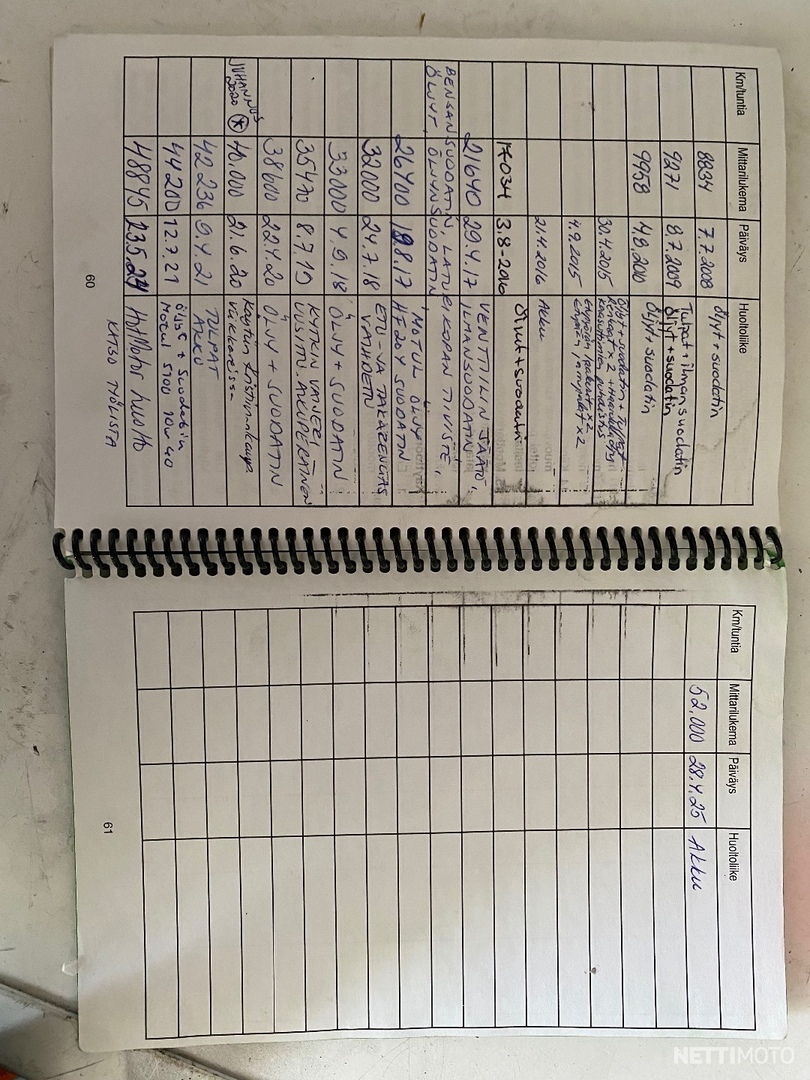 Km/tuntia Mittarilukema Päiväys Huoltoliike
8834 7.7.2008 Öljyt + suodatin
9271 8.7.2009 Tulpat + ilmansuodatin
Öljyt + suodatin
9958 4.8.2010 Öljyt + suodatin
30.4.2015 Öljyt + suodatin + tulpat
Renkaat x 2
4.9.2015
21.4.2016 Akku
17034 3.8-2016 Öljyt + suodatin
21640 29.4.17 VENTTIILIN SÄÄTÖ,
ILMANSUODATIN
BENSANSUODATIN, LATURIKOPAN TIIVISTE,
ÖLJYT, ÖLJYNSUODATIN
26400 18.8.17 MOTUL ÖLJY
HIZOY SUODATIN
32000 24.7.18 ETU-JA TAKARENGAS
VAIHDETTU
33000 4.9.18 ÖLJY + SUODATIN
35470 8.7.19 KYTKIN VAIJERI
UUSITTU. ALKUPERÄINEN
38600 22.4.20 ÖLJY + SUODATIN
JUHANNUS
2020 * 40.000 21.6.20 Käytiin Kristiinankaupungissa
42 236 9.4.21 TULPAT
AKKU
44200 12.7.21 Öljyt + Suodatin
Motul 5100 10w-40
48845 23.5.24 HotMotor huolto
KATSO TYÖLISTA
60
Km/tuntia Mittarilukema Päiväys Huoltoliike
52.000 28.4.25 Akku
61
NETTIMOTO